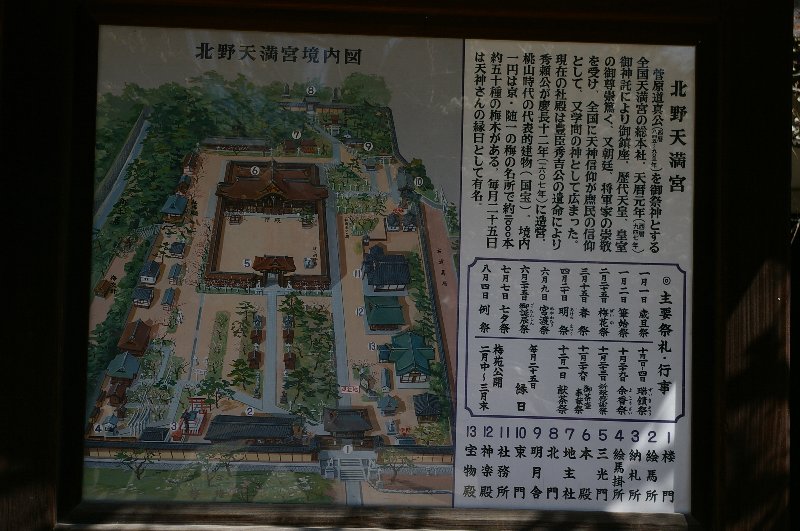 北野天満宮境内図
北野天満宮
菅原道真公を御祭神とする
全国天満宮の総本社、天暦元年
御神託により御鎮座、歴代天皇、皇室
の御尊崇篤く、又朝廷、将軍家の崇敬
を受け、全国に天神信仰が庶民の信仰
として、又学問の神として広まった。
現在の社殿は豊臣秀吉公の遺命により
秀頼公が慶長十二年(一六〇七年)に造営、
桃山時代の代表的建物(国宝)、境内
一円は京・随一の梅の名所で約二、〇〇〇本
約五十種の梅木がある。毎月二十五日
は天神さんの縁日として有名。
◎主要祭礼・行事
一月一日 歳旦祭
一月二日 筆始祭
二月二十五日 梅花祭
三月十五日 春祭
四月二十日 明祭
六月九日 宮渡祭
六月二十五日 御誕辰祭
七月七日 七夕祭
八月四日 例祭
十月四日 瑞饋祭
十月二十九日 余香祭
十二月一日 献茶祭
毎月二十五日 縁日
梅苑公開
二月中〜三月末
1 楼門
2 絵馬所
3 納札所
4 絵馬掛所
5 三光門
6 本殿
7 地主社
8 北門
9 明月舎
10 東門
11 社務所
12 神楽殿
13 宝物殿
1
2
3
4
5
6
7
8
9
10
11
12
13